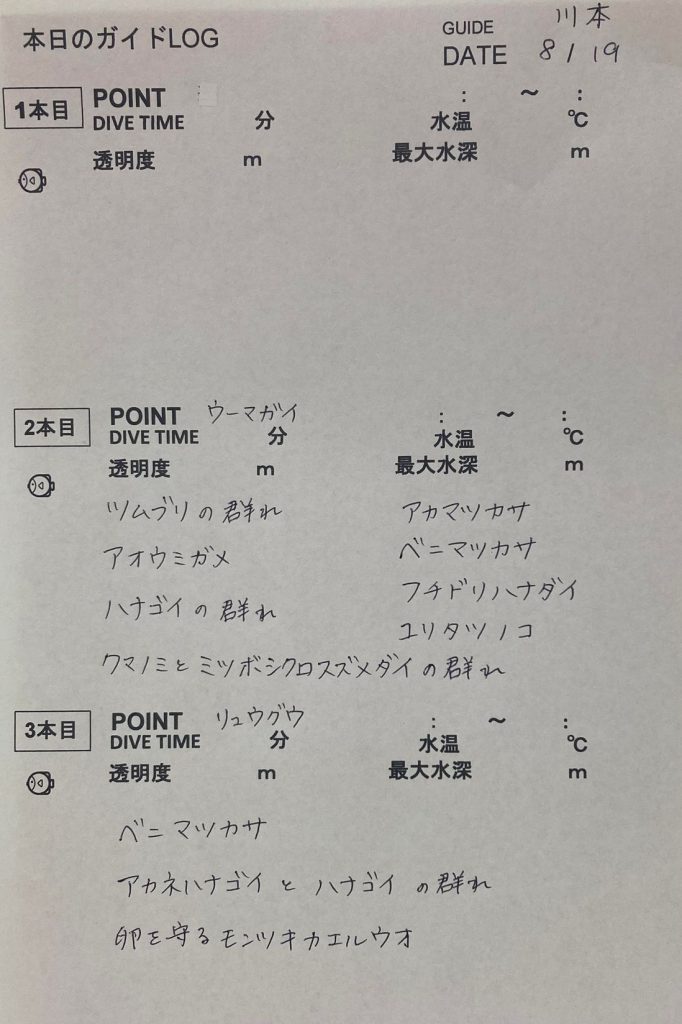 本日のガイドLOG
GUIDE 川本
DATE 8/19
1本目 POINT : ～ :
DIVE TIME 分 水温 ℃
透明度 m 最大水深 m
2本目 POINT ウーマガイ : ～ :
DIVE TIME 分 水温 ℃
透明度 m 最大水深 m
ツムブリの群れ アカマツカサ
アオウミガメ ベニマツカサ
ハナゴイの群れ フチドリハナダイ
ユリタツノコ
クマノミとミツボシクロスズメダイの群れ
3本目 POINT リュウグウ : ～ :
DIVE TIME 分 水温 ℃
透明度 m 最大水深 m
ベニマツカサ
アカネハナゴイとハナゴイの群れ
卵を守るモンツキカエルウオ